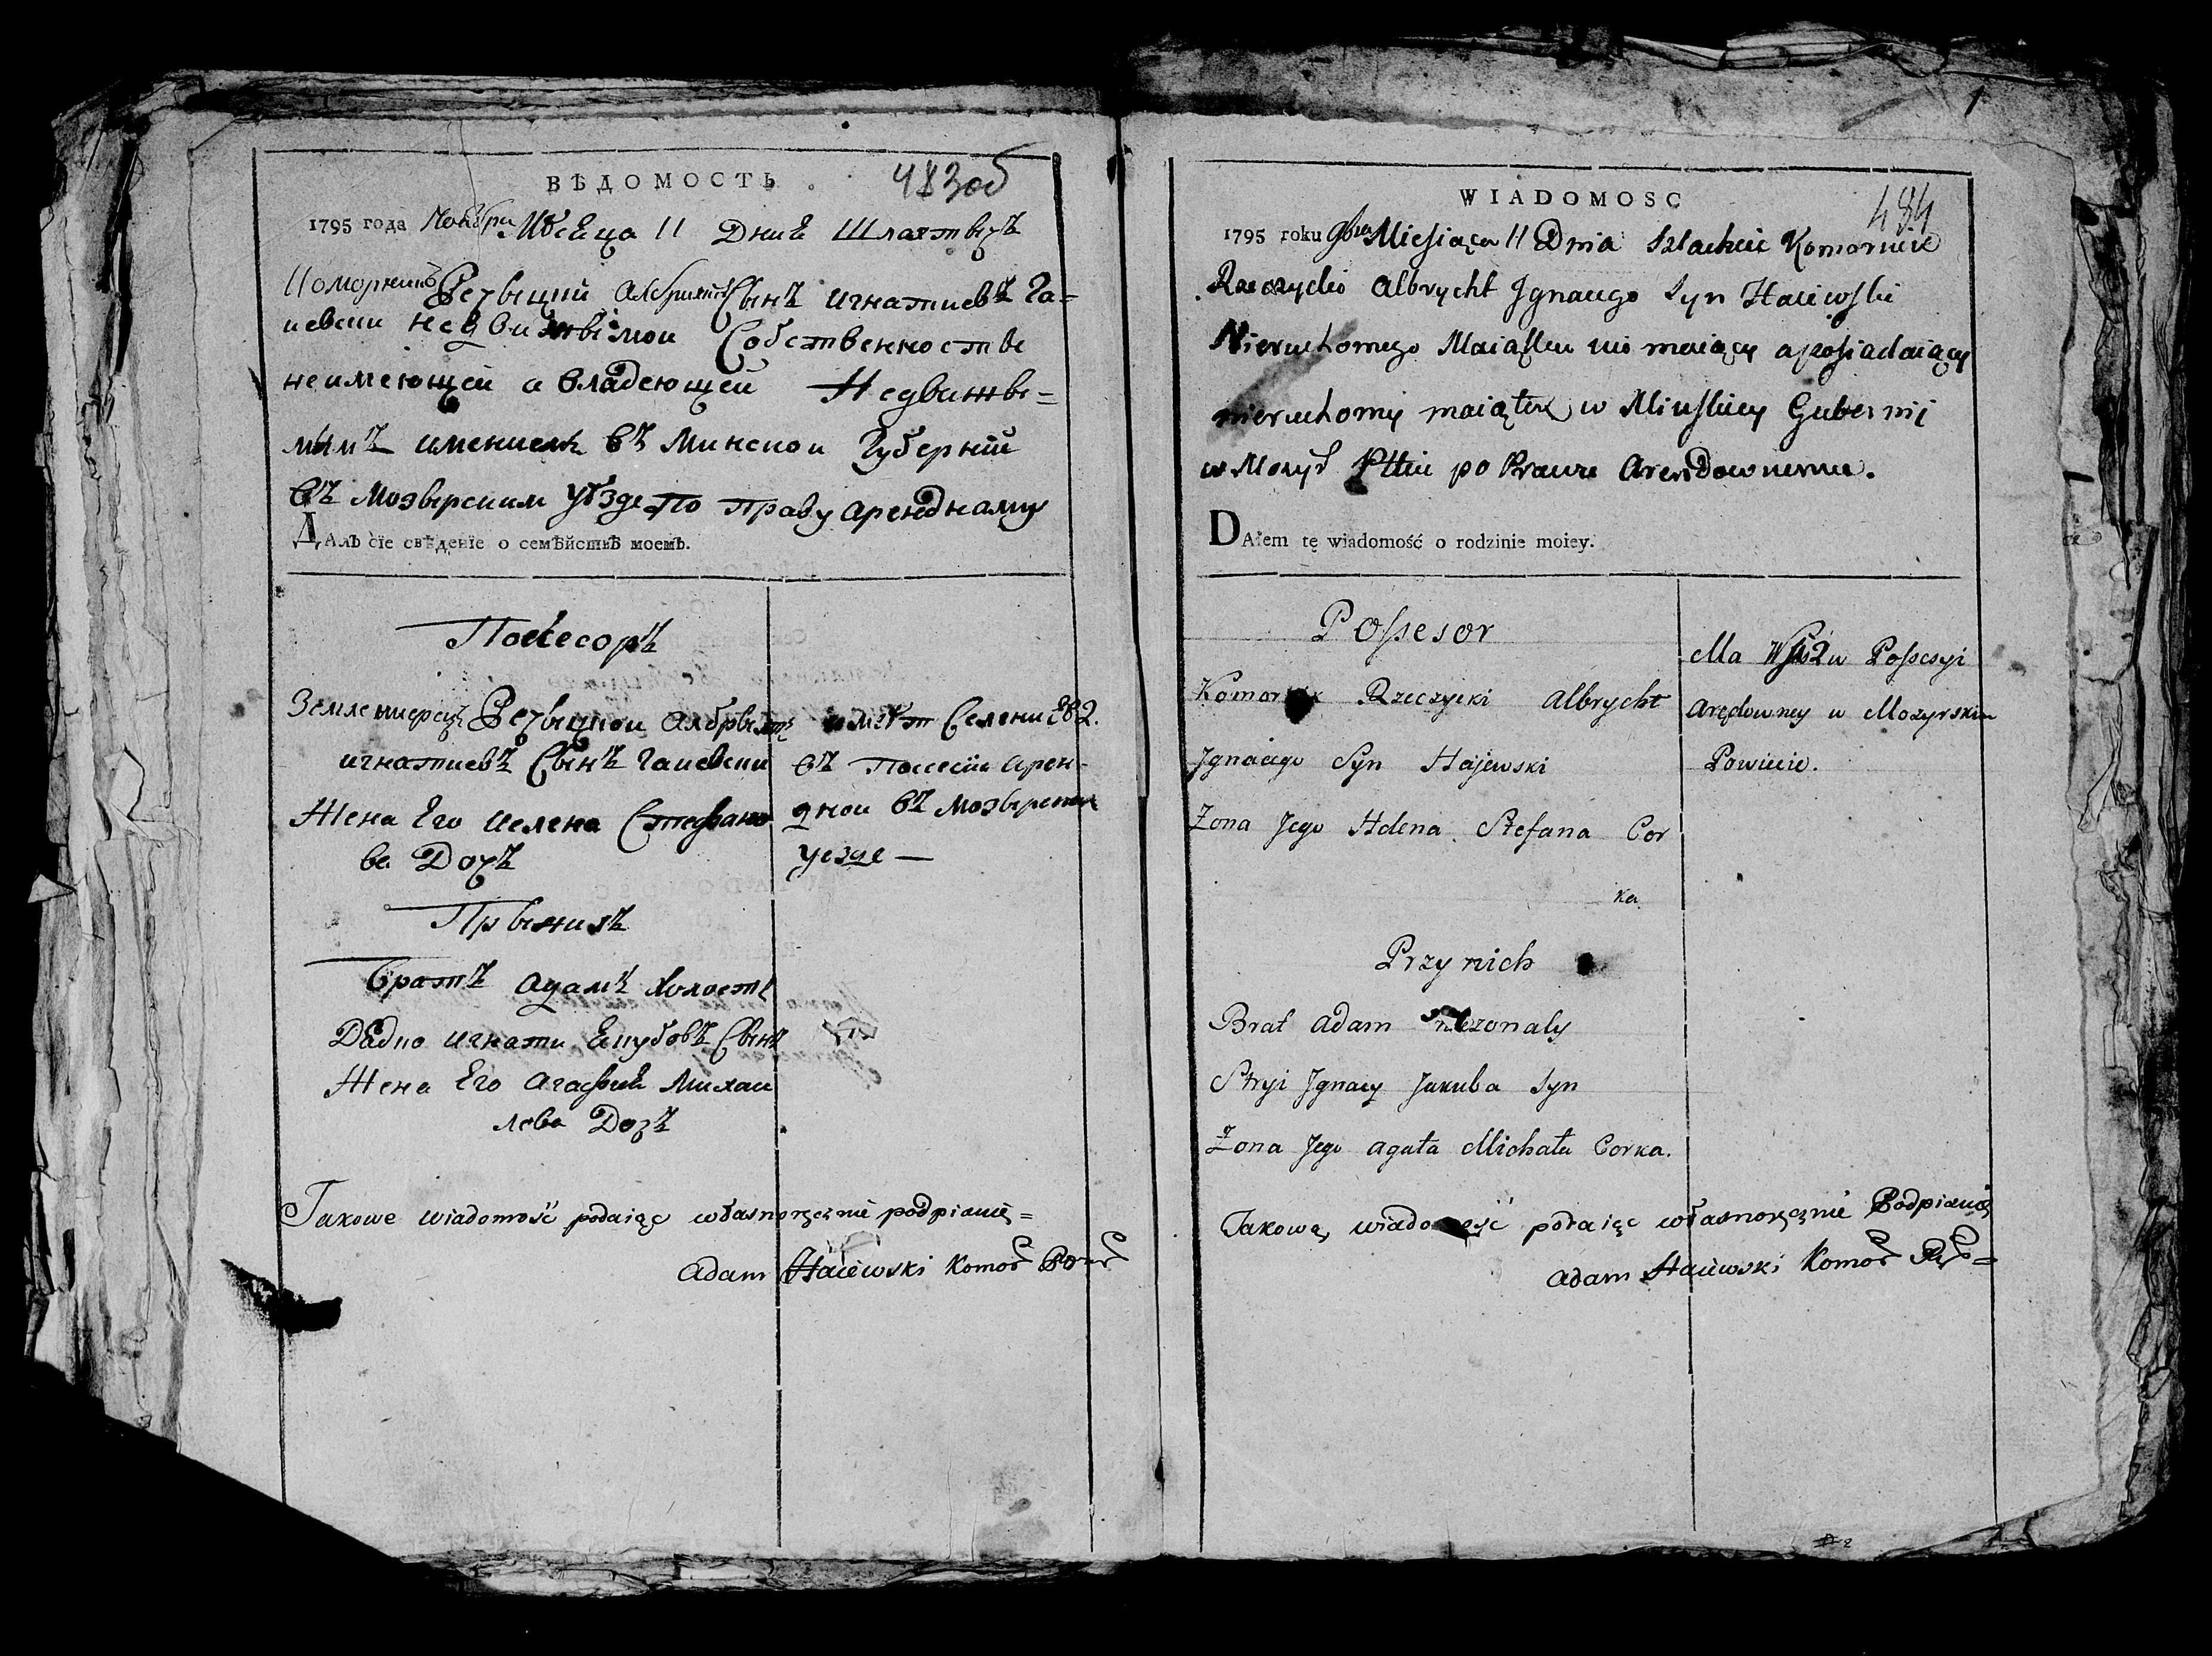 ВѢДОМОСТЬ
483об
1795 года Ноября Мѣсеца 11 Дния Шляхтвичъ
Коморникъ Речыцкий Албрихтъ Сынъ Игнатиевъ Га=
иевски недвижвімои Собственностве
неимеющей а владеющей Недвижве=
мымъ имениемъ въ Минской Губернии
въ Мозырскимъ Уѣзде По Праву Арендному
ДАлъ сіе свѣденіе о семѣйствѣ моемъ.
Посесоръ
Землемиерецъ Речыцкои Албрыхтъ
игнатиевъ Сынъ Гаиевски
Жена Его Иелена Стефано
ва Дочъ
имѣет Селении 2.
въ Посесіи Арен-
дной въ Мозырским
уезде —
При нихъ
Братъ Адамъ Холостъ
Дядко Игнати Екубовъ Сынъ
Жена Его Агафия Михаи
лова Дочъ
Takowe wiadomość podaiąc własnoręcznie podpisuię=
Adam Haiewski Komor
WIADOMOSC
484
1795 roku 9bra Miesiąca 11 Dnia Szlachcic Komornik
Rzeczycki Albrycht Jgnacego Syn Haiewski
Nieruchomego Maiątku nie maiący a posiadaiący
nieruchomy maiątek w Minskiey Gubernij
w Mozyr Pttcie po Prawu Arendownemu.
DAłem tę wiadomość o rodzinie moiey.
Possesor
Komornik Rzeczycki Albrycht
Jgnacego Syn Hajewski
Zona Jego Helena Stefana Cor
ka
Ma Wsi 2 w Possesyi
Arędowney w Mozyrskim
Powiecie.
Przy nich
Brat Adam niezonaly
Stryi Jgnacy Jakuba Syn
Zona Jego Agata Michała Corka.
Takową wiadomość podaiąc własnoręcznie Podpisuię
Adam Haiewski Komor